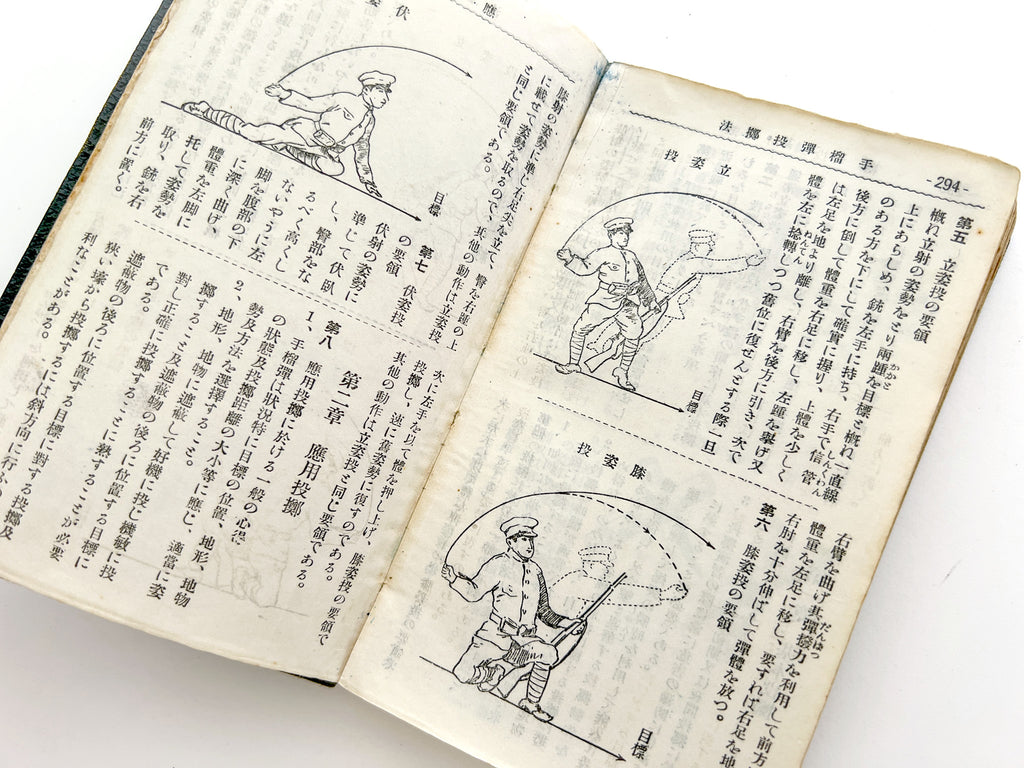 手榴彈投擲法
-294-
立姿投
目標
第五　立姿投の要領
概ね立射の姿勢をとり兩踵を目標と概ね一直線
かかと
上にあらしめ、銃を左手に持ち、右手で信管
しんくわん
のある方を下にして確實に握り、上體を少しく
後方に倒して體重を右足に移し、左踵を擧げ又
は左足を地より離し、右臂を後方に引き、次で
體を左に捻轉しつつ舊位に復せんとする際一旦
ねんてん
右臂を曲げ其彈撥力を利用して前方
だんはつ
體重を左足に移し、要すれば右足を地
右肘を十分伸ばして彈體を放つ。
第六　膝姿投の要領
膝姿投
目標
應
伏姿
目標
膝射の姿勢に準じ右足尖を立て、臀を右踵の上
に載せて姿勢を取るので、其他の動作は立姿投
と同じ要領である。
第七　伏姿投
の要領
伏射の姿勢に
準じて伏臥
し、臀部をな
るべく高くし
ないやうに左
脚を腹部の下
に深く曲げ、
體重を左脚に
托して姿勢を
取り、銃を右
前方に置く。
次に左手を以て體を押し上げ、膝姿投の要領で
投擲し、速に舊姿勢に復すのである。
其他の動作は立姿投と同じ要領である。
第二章　應用投擲
第八　應用投擲に於ける一般の心得
1、手榴彈は狀況特に目標の位置、地形、地物
の狀態及投擲距離の大小等に應じ、適當に姿
勢及方法を選擇すること。
2、地形、地物に遮蔽して好機に投じ機敏に投
擲すること及遮蔽物の後ろに位置する目標に
對し正確に投擲することに熟することが必要
である。
遮蔽物の後ろに位置する目標に對する投擲及
狹い壕から投擲するには斜方向に行ふの
利なことがある。